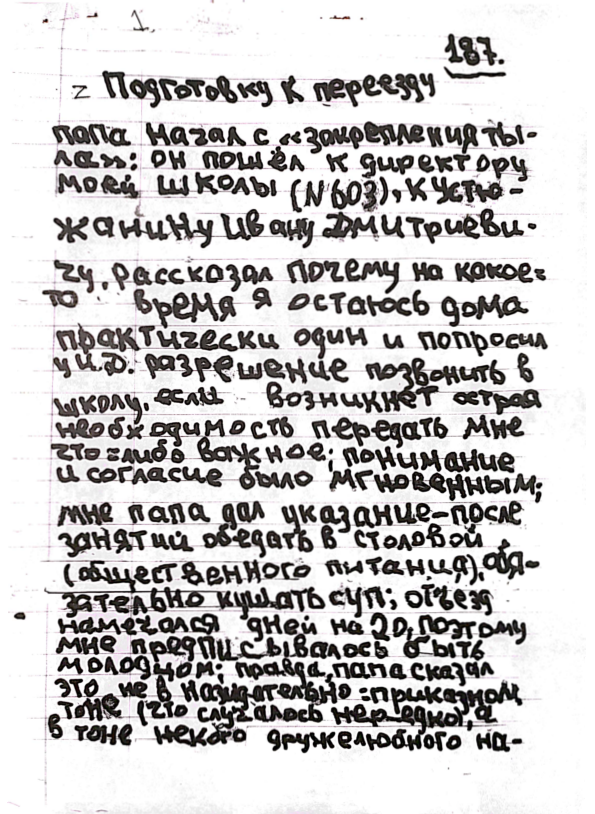 1.
187.
Подготовку к переезду
папа начал с «закрепления ты-
ла»: он пошёл к директору
моей школы (N 603), к Устю-
жанину Ивану Дмитриеви-
чу, рассказал почему на какое=
то время я остаюсь дома
практически один и попросил
у И.Д. разрешение позвонить в
школу, если возникнет острая
необходимость передать мне
что=либо важное; понимание
и согласие было мгновенным;
мне папа дал указание-после
занятий обедать в столовой
(общественного питания), обя-
зательно кушать суп; отъезд
намечался дней на 20, поэтому
мне предписывалось быть
молодцом; правда, папа сказал
это не в назидательно=приказном
тоне (что случалось нередко), а
в тоне некого дружелюбного на-